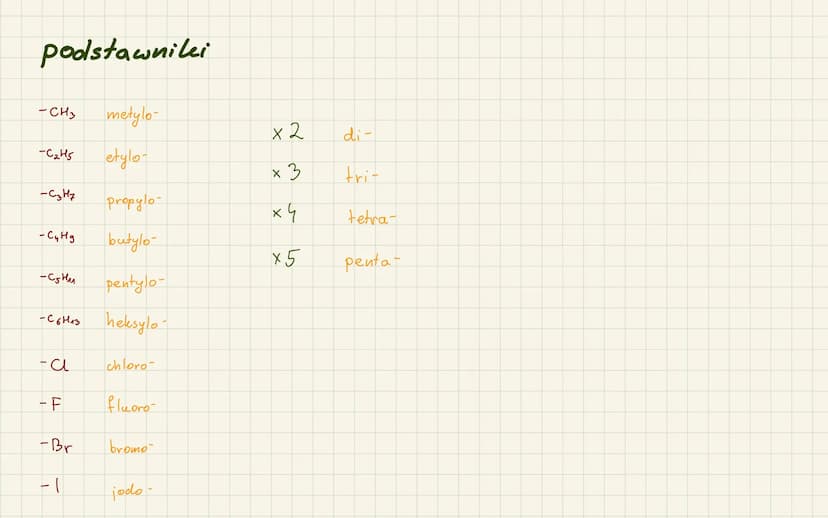 podstawniki
-CH₃ metylo-
-C₂H₅ etylo-
-C₃H₇ propylo-
-C₄H₉ butylo-
-C₅H₁₁ pentylo-
-C₆H₁₃ heksylo-
-Cl chloro-
-F fluoro-
-Br bromo-
-I jodo-
x2 di-
x3 tri-
x4 tetra-
x5 penta-